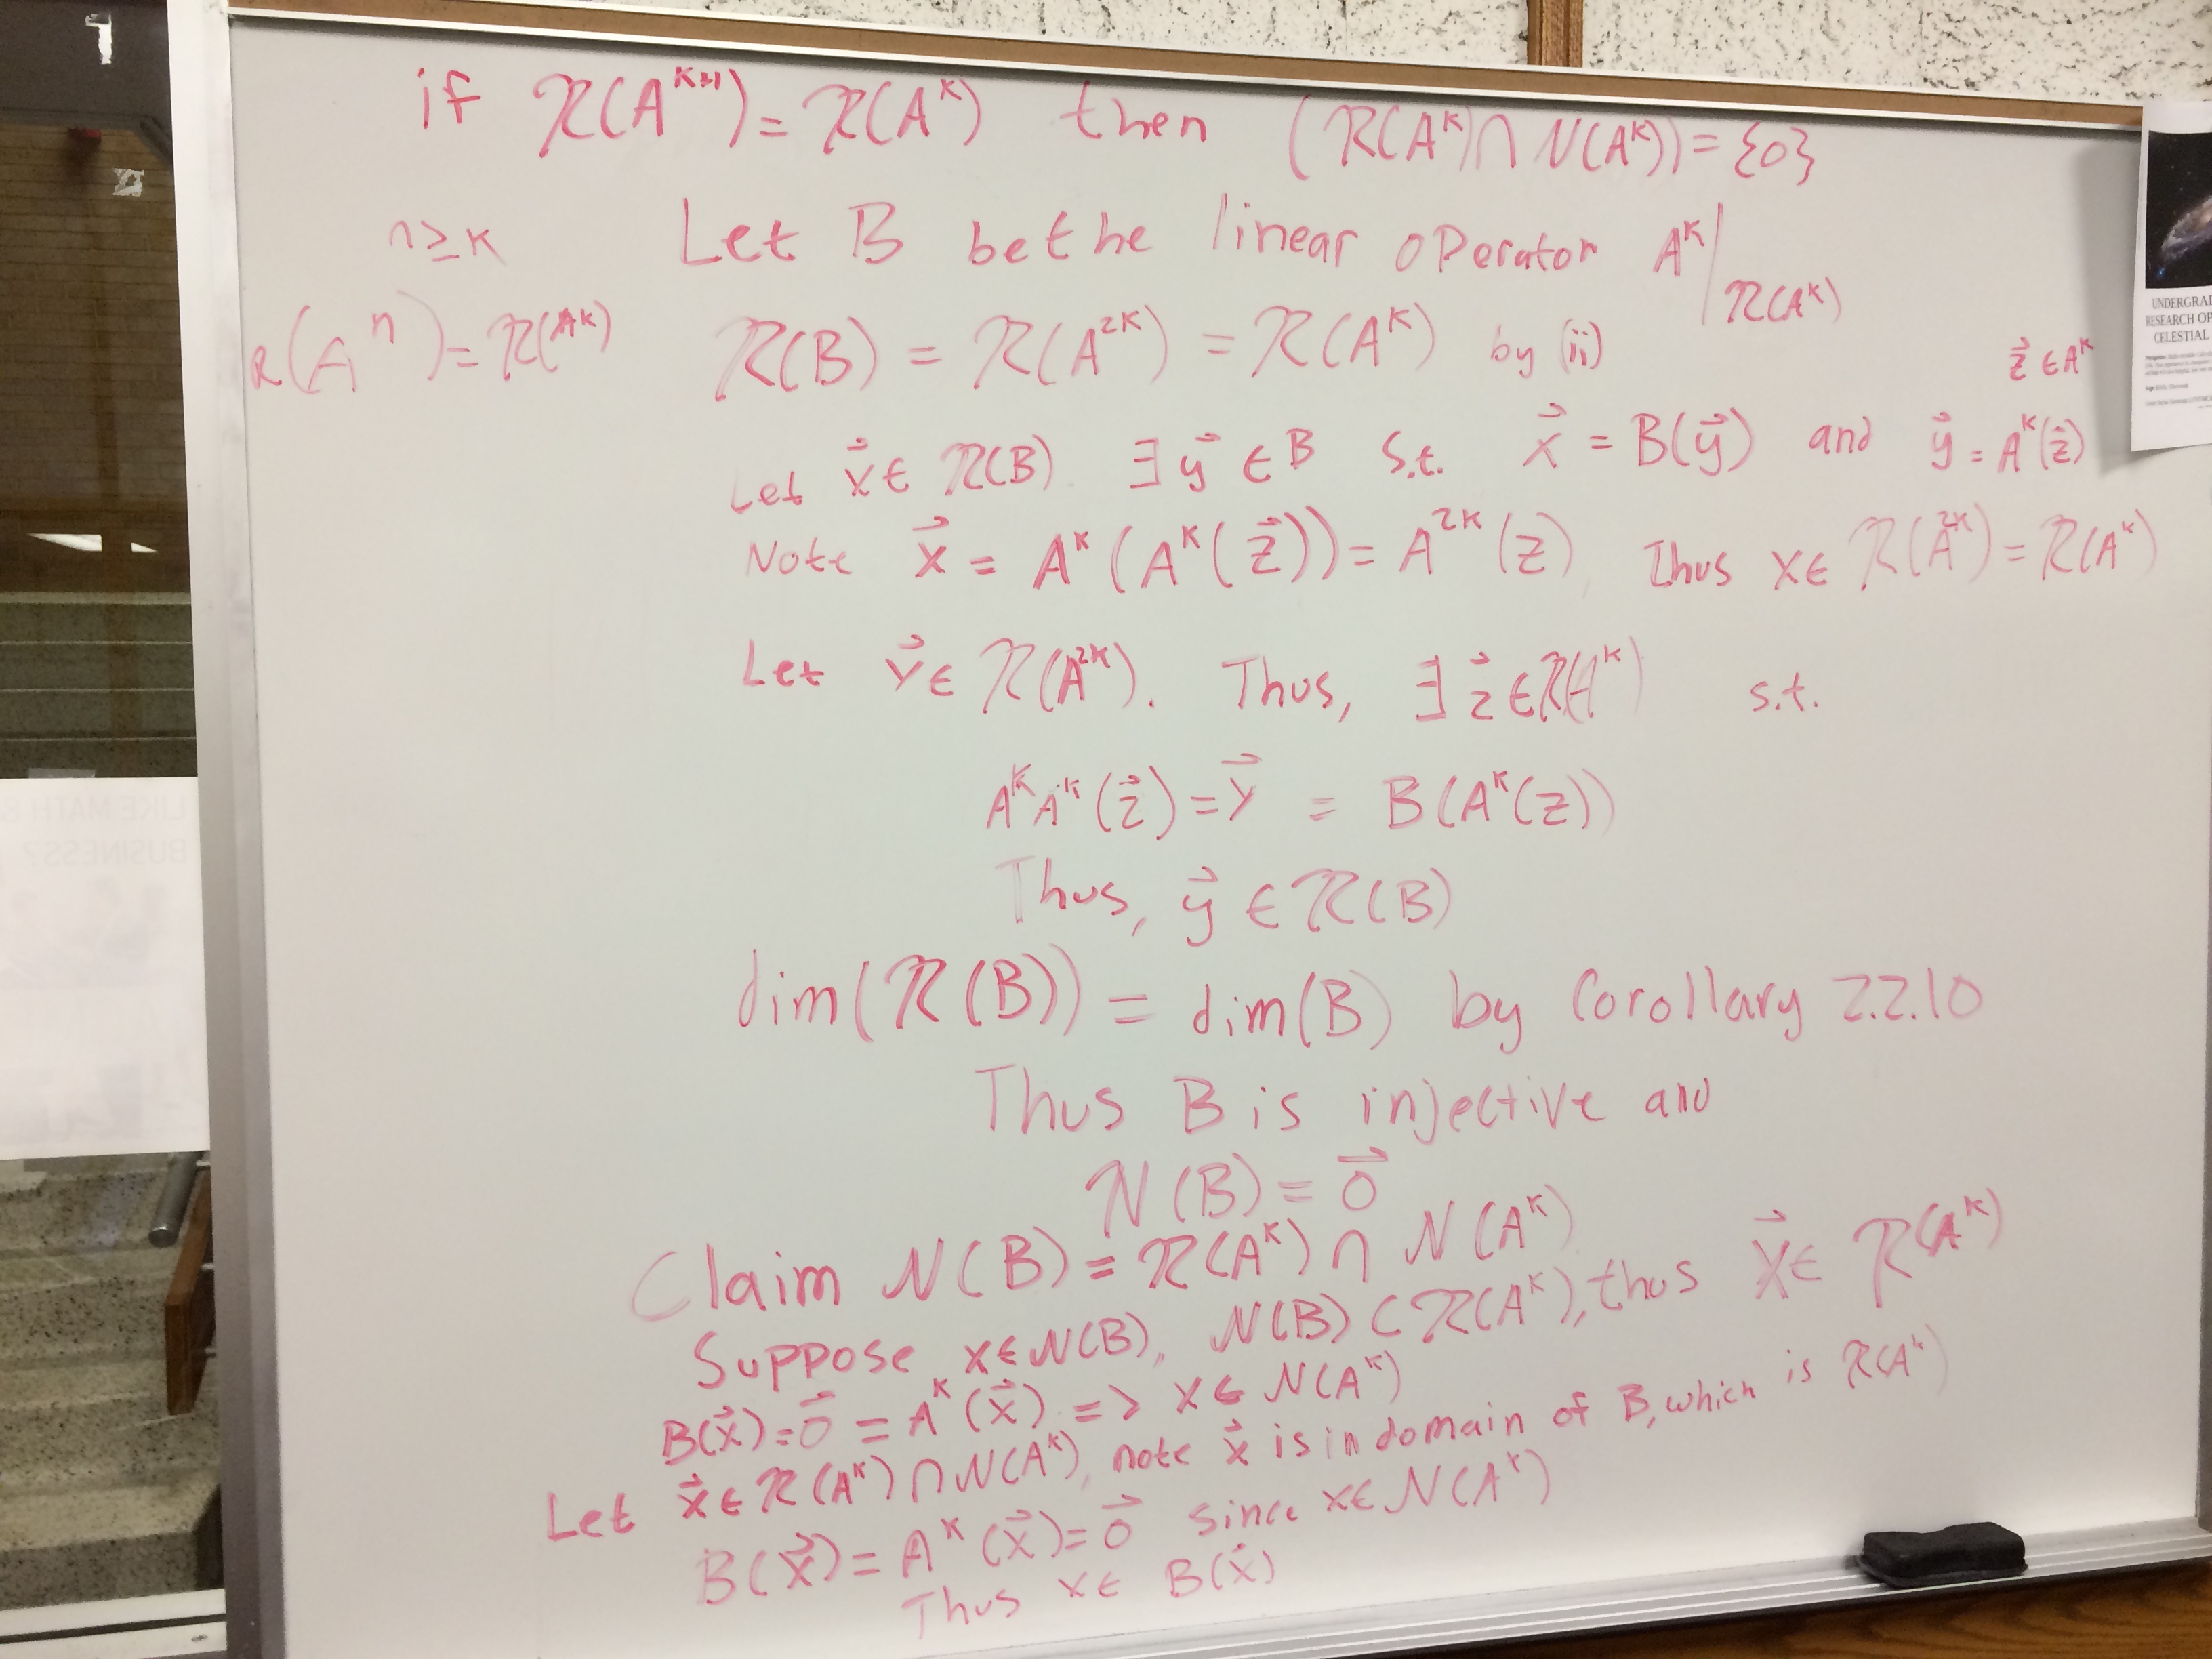 if R(A^{K+1}) = R(A^K) then (R(A^K) ∩ N(A^K)) = {0}
n ≥ K
Let B be the linear operator A^K | R(A^K)
R(A^n) = R(A^K)
R(B) = R(A^{2K}) = R(A^K) by (ii)
z⃗ ∈ A^K
Let x⃗ ∈ R(B). ∃ y⃗ ∈ B s.t. x⃗ = B(y⃗) and y⃗ = A^K(z⃗)
Note x⃗ = A^K(A^K(z⃗)) = A^{2K}(z) Thus x ∈ R(A^{2K}) = R(A^K)
Let y⃗ ∈ R(A^{2K}). Thus, ∃ z⃗ ∈ R(A^K) s.t.
A^K A^K(z⃗) = y⃗ = B(A^K(z))
Thus, y⃗ ∈ R(B)
dim(R(B)) = dim(B) by Corollary 2.2.10
Thus B is injective and
N(B) = 0⃗
Claim N(B) = R(A^K) ∩ N(A^K)
Suppose x ∈ N(B), N(B) ⊂ R(A^K), thus x⃗ ∈ R(A^K)
B(x⃗) = 0⃗ = A^K(x⃗) => x ∈ N(A^K)
Let x⃗ ∈ R(A^K) ∩ N(A^K), note x⃗ is in domain of B, which is R(A^K)
B(x⃗) = A^K(x⃗) = 0⃗ since x ∈ N(A^K)
Thus x ∈ B(x⃗)
UNDERGRAD
RESEARCH OP
CELESTIAL
LIKE MATH &
BUSINESS?